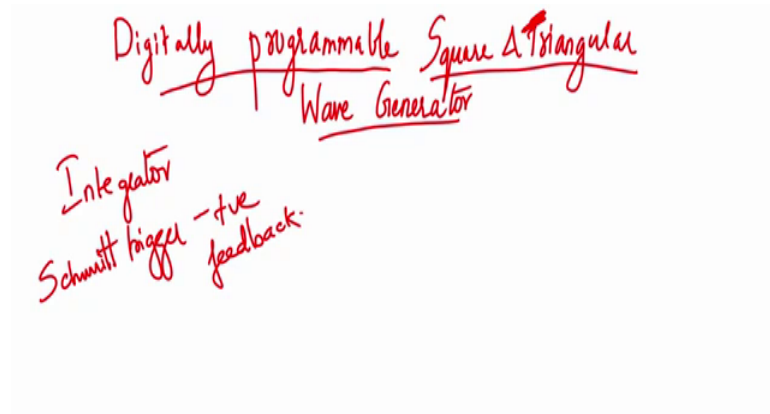 Digitally programmable Square & Triangular
Wave Generator
Integrator
Schmitt trigger - +ve
feedback.